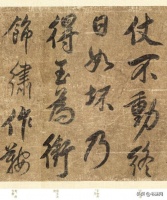 仗不動終
日如坏乃
得玉為銜
飾繡作鞍